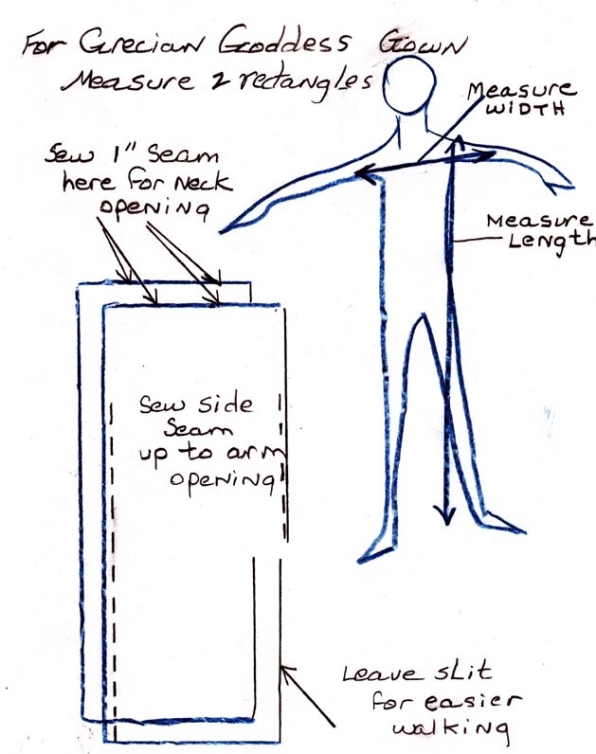 For Grecian Goddess Gown
Measure 2 rectangles
Measure
WIDTH
Sew 1" Seam
here for Neck
opening
Measure
LENGTH
Sew side
Seam
up to arm
opening
Leave slit
for easier
walking